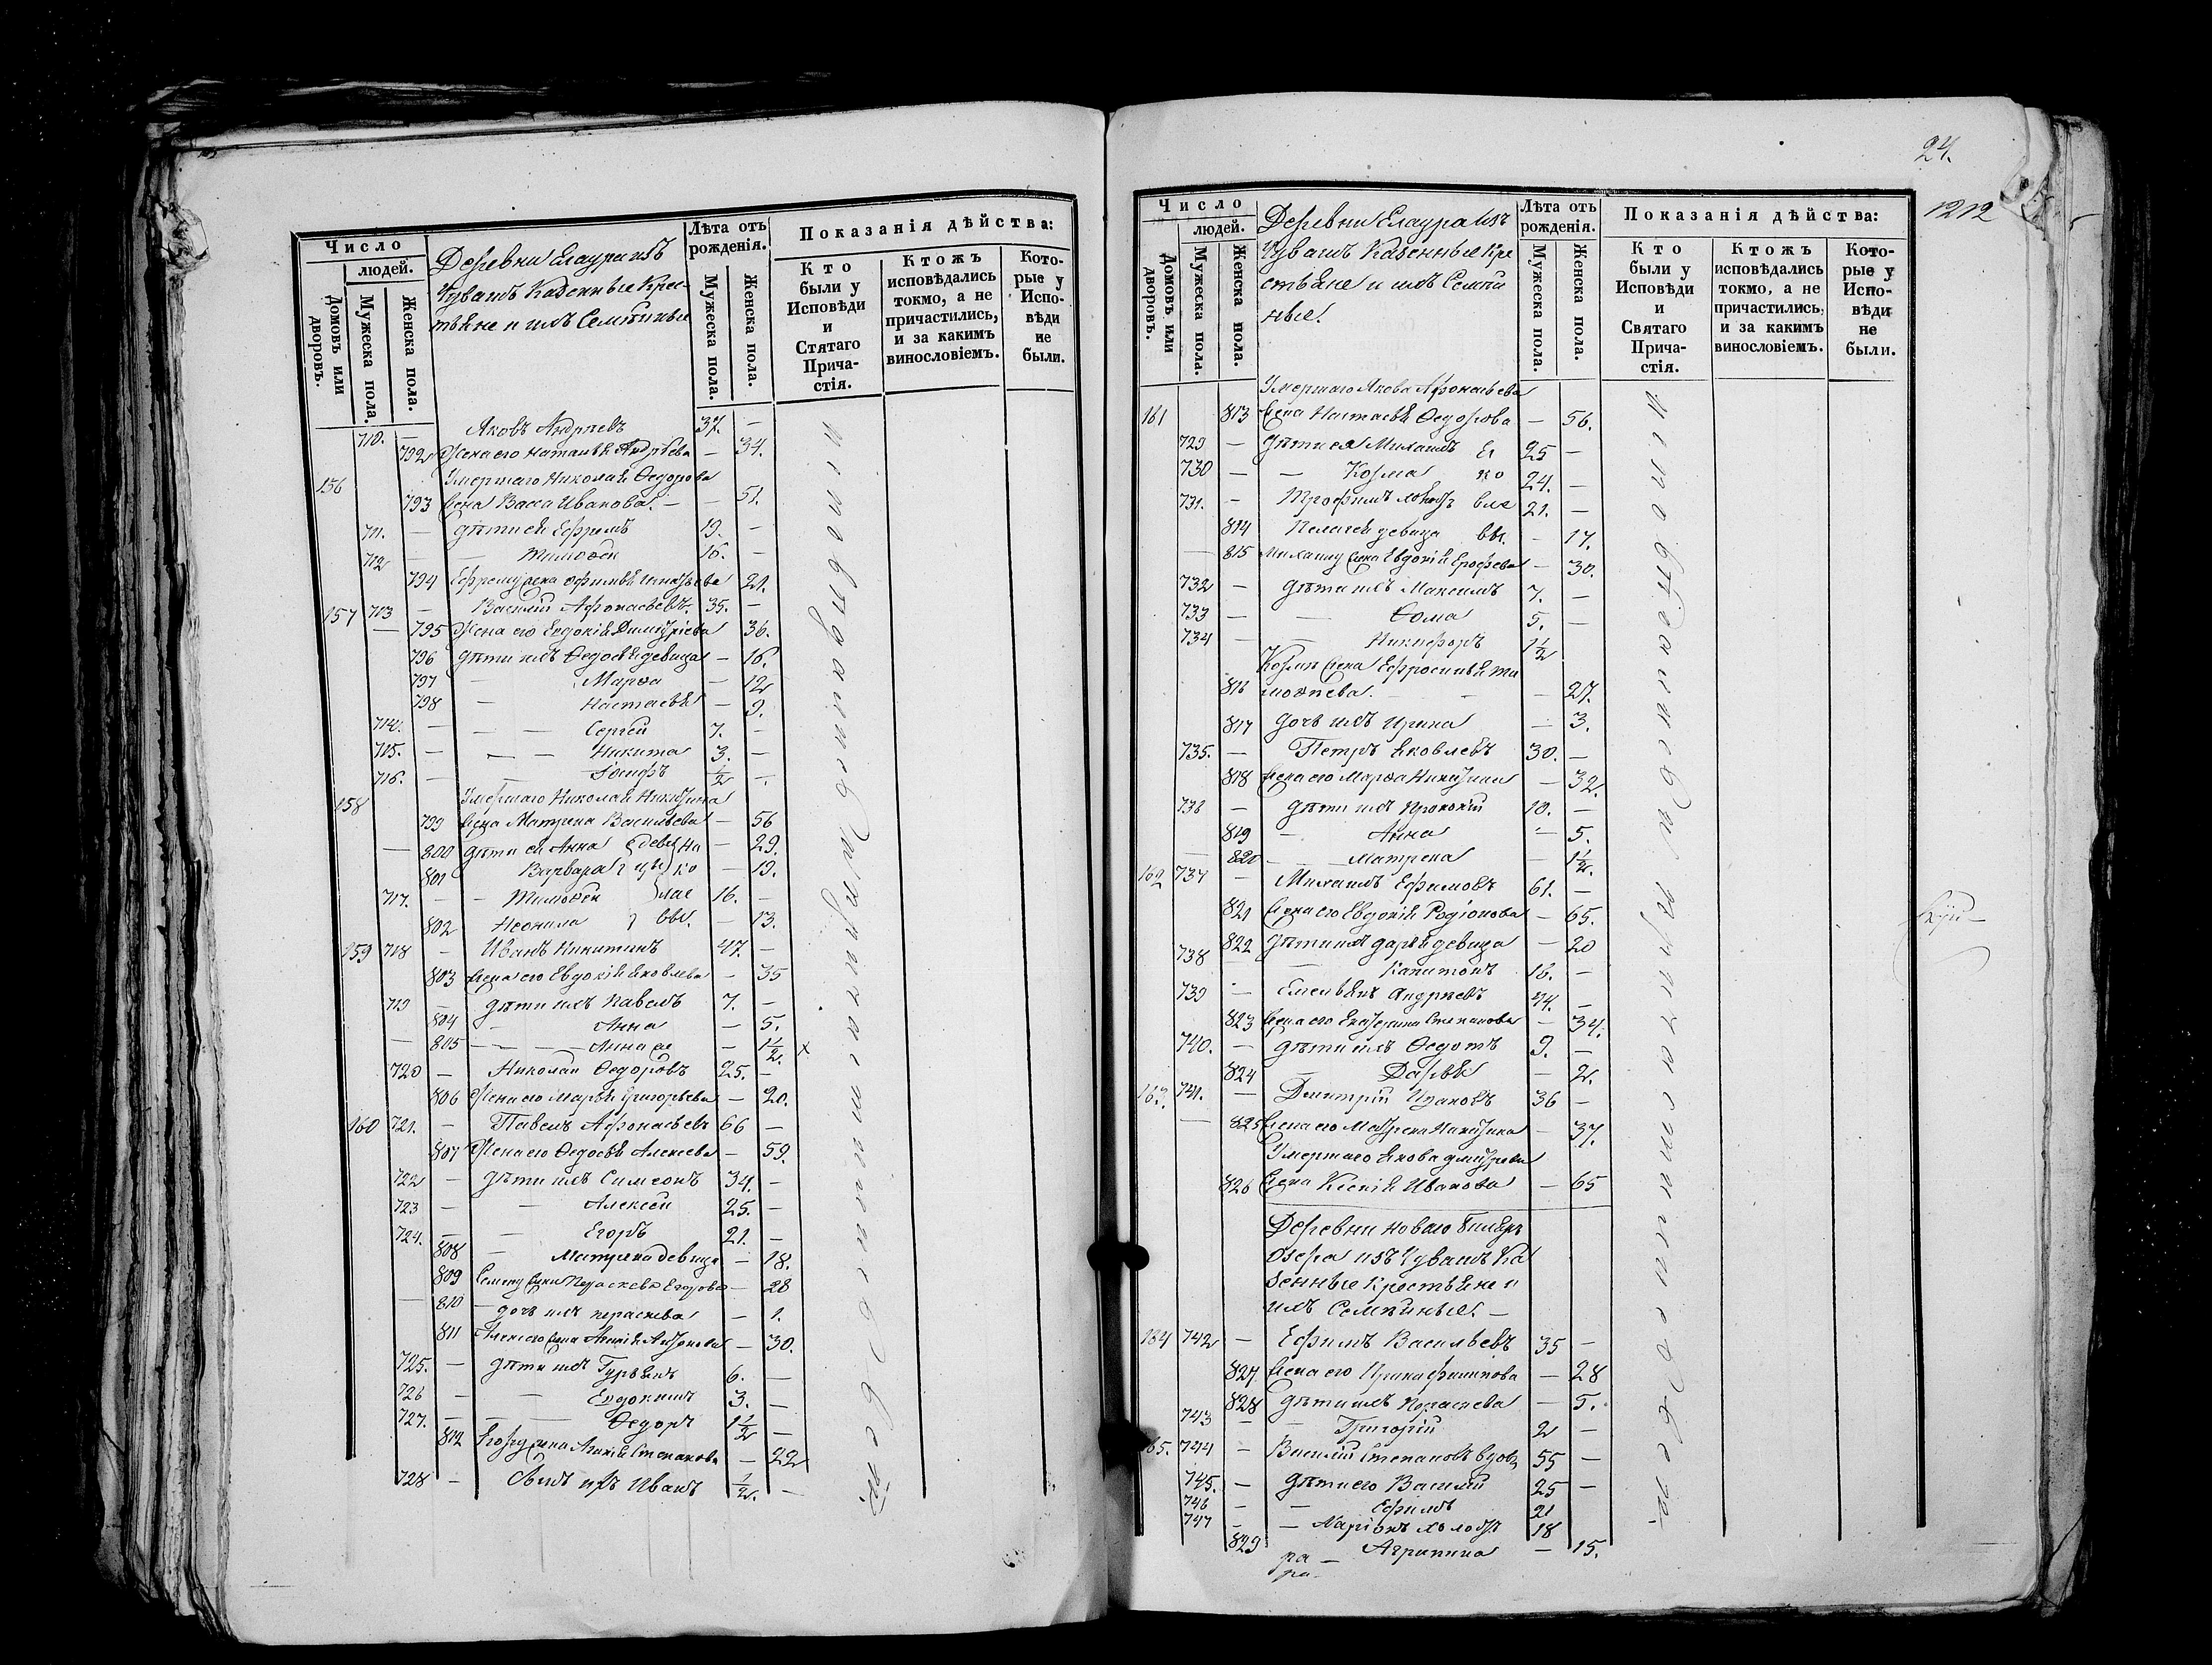 Число
людей.
Домовъ или дворовъ.
Мужеска пола
Женска пола.
Деревни Елаура изъ
Чувашъ Казенные Крес-
тьяне и ихъ Семейные
Лѣта отъ рожденія.
Мужеска пола.
Женска пола.
Показанія дѣйства:
Кто были у Исповѣди и Стятаго Прича-стія.
Ктожъ исповѣдались токмо, а не причастились, и за какимъ винословіемъ.
Кото-рые у Испо-вѣди не были.
710. Яковъ Андреевъ 37. —
792 Жена его Наталья Андрѣева — 34.
156 Умершаго Николая Ѳедорова
793 жена Васса Иванова. — — 51.
711. — дѣти ея Ефремъ 19. —
712 — Тимоѳей 16. —
794 Ефрему жена 21.
157 713 — Василій Афонасьевъ. 35. —
— 795 Жена его Евдокія Димитріева 36.
796 дѣти ихъ Ѳедосья девица — 16.
797 — Марѳа — 12
798 — Настасья — 9.
714. — — — Сергей 7. —
715. — — — Никита 3. —
716. — — Іосифъ 1/2 —
158 Умершаго Николая Никитина
799 жена Матрена Васильева — 56
— 800 дѣти ея Анна деви На — 29.
801 Варвара цы ко — 19.
717. — — Тимоѳей лае 16. —
802 Неонила вы. — 13.
159 718 — Иванъ Никитинъ 47. —
803 жена его Евдокія Яковлева — 35
719 — дѣти ихъ Павелъ 7. —
804 — Анна — 5.
— 805 — — — Анна — 1 1/2. х
720 — Николай Ѳедоровъ 25. —
806 Жена его Марья Григорьева — 20.
160 721. — Павелъ Афонасьевъ 66 —
807 Жена его Ѳедосья Алексеева — 59.
722 — дѣти ихъ Симеонъ 34. —
723 — — Алексей 25. —
724. — — Егоръ 21. —
808 — Матрена девица — 18.
809 Семену жена Параскева Егорова — 28
— 810 — дочь ихъ Параскева — 1.
811 Алексею жена — 30.
725. — дѣти ихъ Гурьянъ 6. —
726 — — Евдокимъ 3. —
727. — — — Ѳедоръ 1 1/2 —
812 Егору жена Степанова — 22
728 — Сынъ ихъ Иванъ 1/2. —
24.
1212
Число
людей.
Домовъ или дворовъ.
Мужеска пола.
Женска пола.
Деревни Елаура изъ
Чувашъ Казенные Кре
стьяне и ихъ Семей
ные.
Лѣта отъ рожденія.
Мужеска пола.
Женска пола.
Показанія дѣйства:
Кто были у Исповѣди и Святаго Прича-стія.
Ктожъ исповѣдались токмо, а не причастились, и за какимъ винословіемъ.
Кото-рые у Испо-вѣди не были.
Умершаго Якова Афонасьева
161 813 жена Настасья Ѳедорова — 56.
729 — дѣти ея Михаилъ 25 —
730 — — Козма ко 24. —
731. — Трофимъ 21. —
814 Пелагея девица вы. — 17.
— 815 Михаилу жена Евдокія Ерофеева — 30.
732 — дѣти ихъ Максимъ 7. —
733 — — Ѳома 5. —
734 — — Никифоръ 1 1/2
Козмы жена Ефросинья Ти
816 моѳеева. — — — 27.
817 дочь ихъ Ирина — 3.
735. — Петръ Яковлевъ 30. —
818 жена его Марѳа Никитина — 32.
736 — дѣти ихъ Прокопій 10. —
819 — Анна — 5.
— 820 — — Матрена — 1 1/2.
162 737 — Михаилъ Ефимовъ 61. —
821 жена его Евдокія Родіонова — 65.
822 дѣти ихъ Дарья девица — 20
738 — Капитонъ 16. —
739 — Емельянъ Андреевъ 44. —
823 жена его Екатерина Степанова — 34.
740. — дѣти ихъ Ѳедотъ 9. —
824 — Дарья — 2.
163. 741. — Дмитрій 36 —
— 825 жена его Матрена Никитина — 37.
Умершаго Якова Дмитрева
826 жена Ксенія Иванова — 65
Деревни Новаго Биляр
Озера изъ Чувашъ Ка
зенные Крестьяне и
ихъ Семейные. —
184 742 — Ефимъ Васильевъ 35 —
827. жена его Ирина Филипова — 28
828 дѣти ихъ Параскева — 5.
743 — — Григорій 2 —
165. 744 — Василій Степановъ вдовъ 55 —
745. — дѣти его Василій 25 —
746 — — Ефимъ 21
747 — — Ларіонъ холостъ 18
829 — Агрипина — 15.